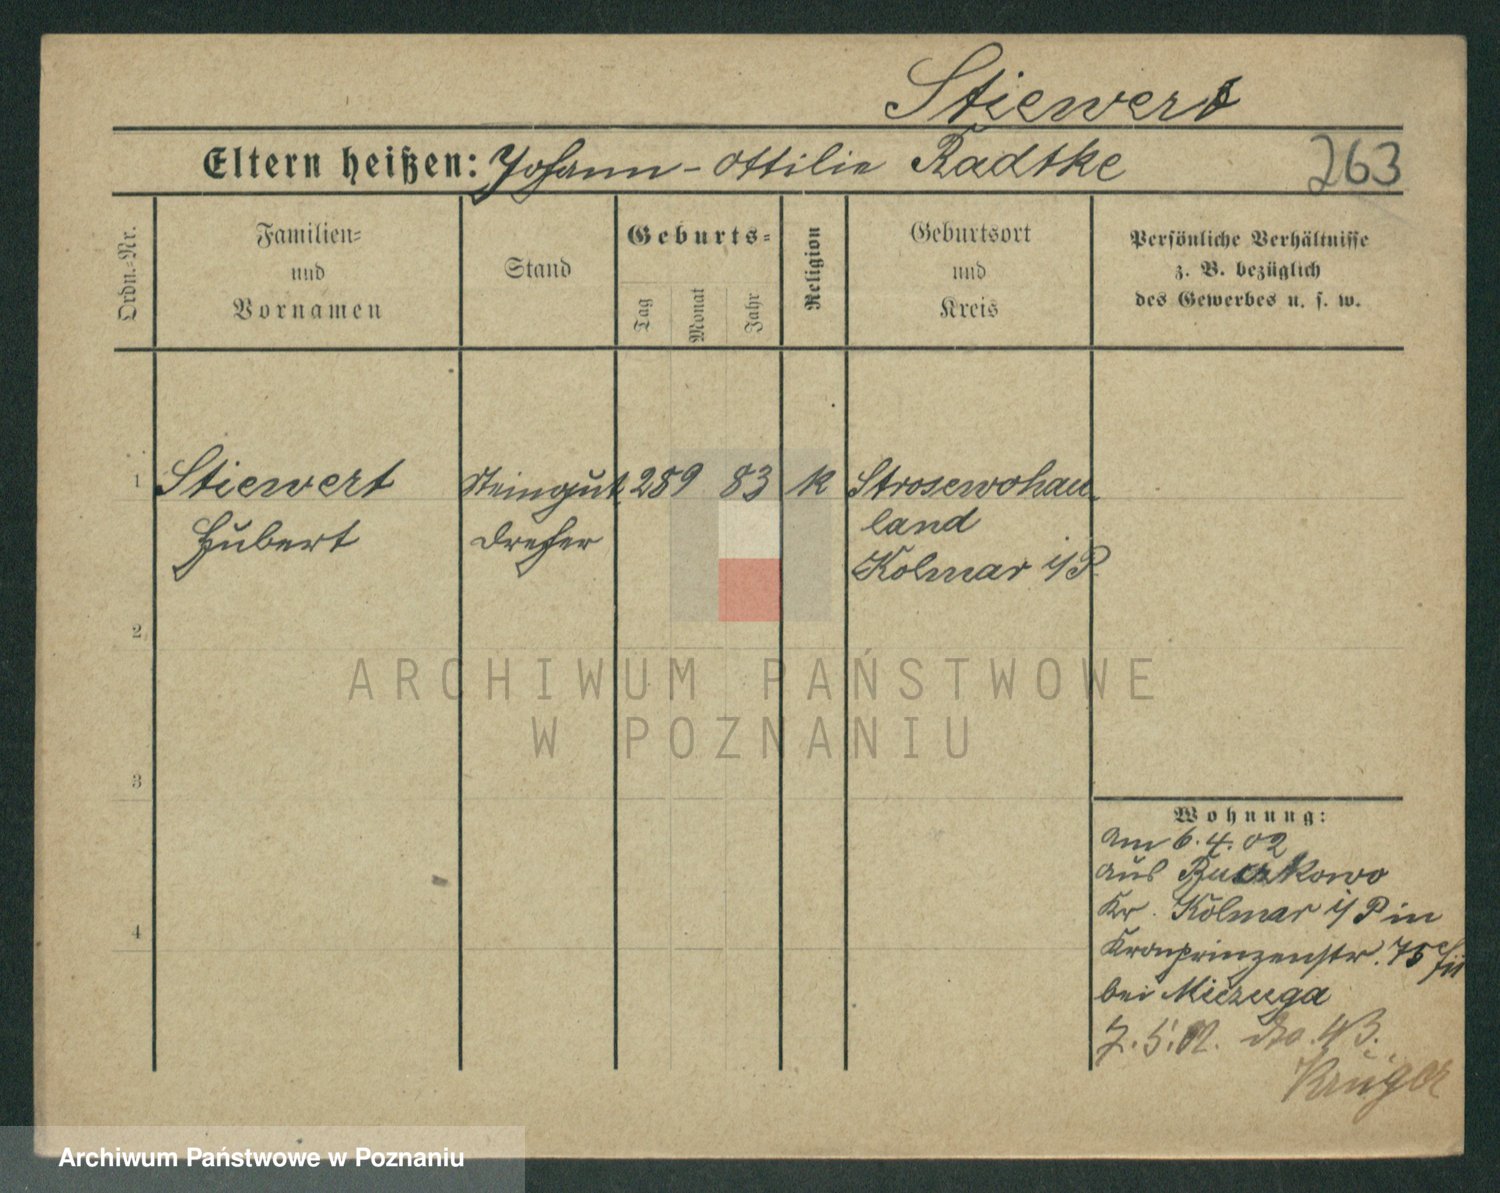 Stiewert
Eltern heißen: Johann - Ottilie Radtke 263
Ordn.-Nr.
Familien-
und
Vornamen
Stand
Geburts-
Tag
Monat
Jahr
Religion
Geburtsort
und
Kreis
Persönliche Verhältnisse
z. B. bezüglich
des Gewerbes u. s. w.
1 Stiewert Steingut 28 9 83 k Strosewohau
Hubert dreher land
Kolmar i/P.
2
ARCHIWUM PAŃSTWOWE
W POZNANIU
3
Wohnung:
am 6.4.02
aus Buczkowo
4 Kr. Kolmar i/P in
Kronprinzenstr. 75
bei
7.5.02. dto. 43.
Krüger
Archiwum Państwowe w Poznaniu